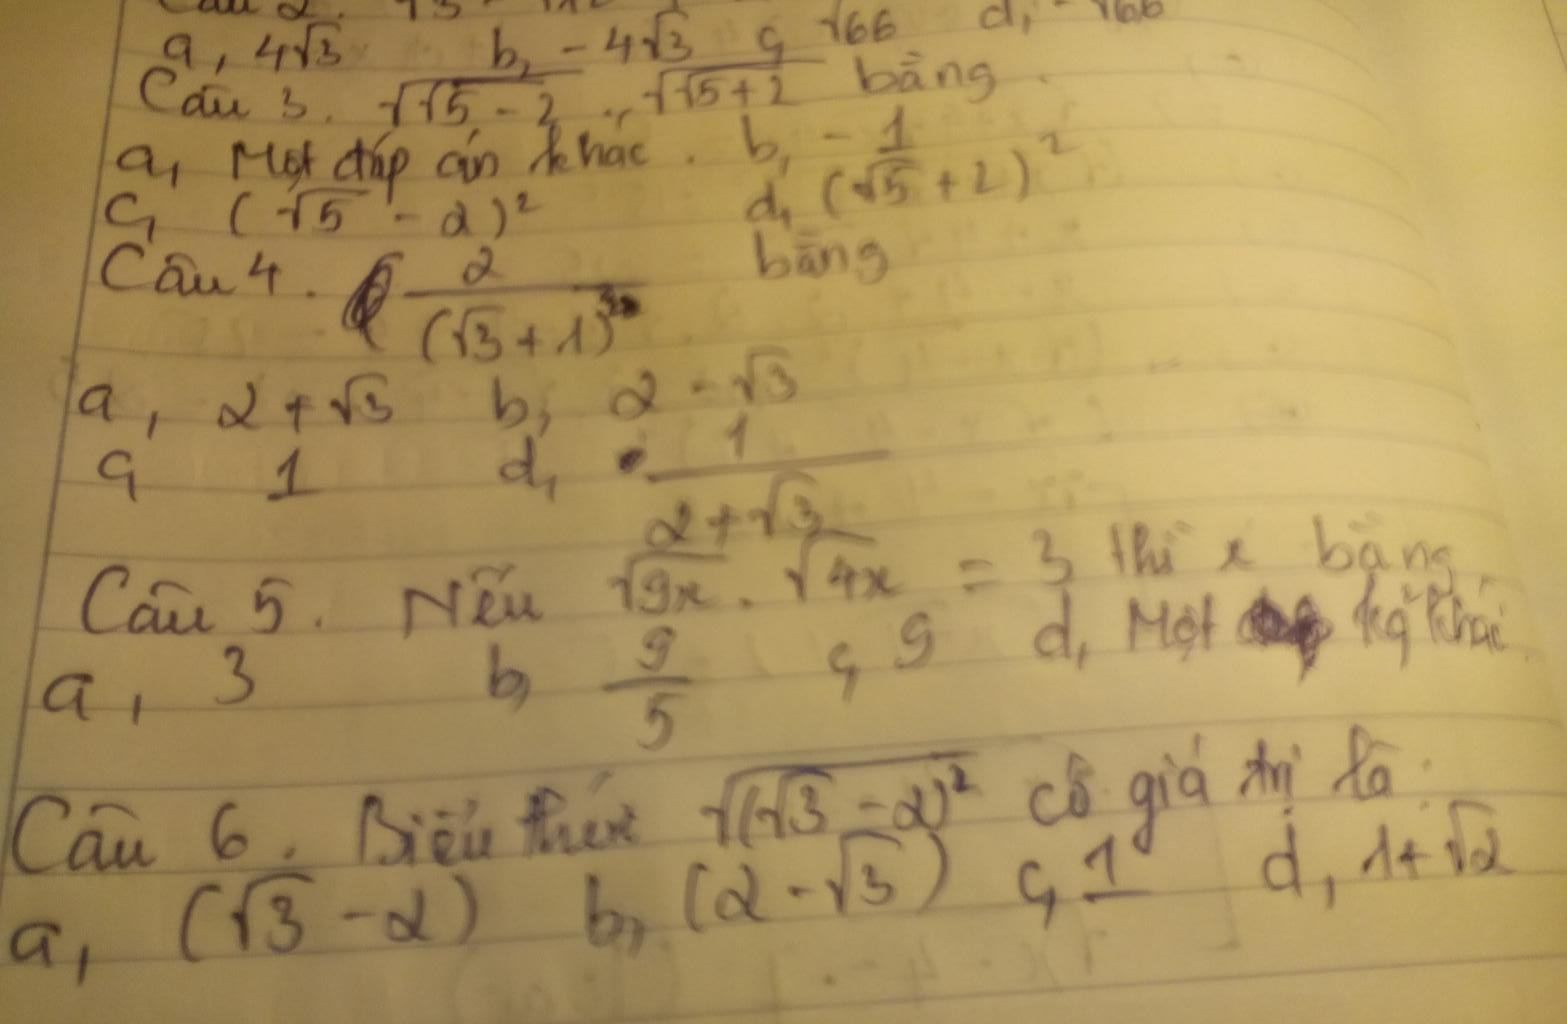 a, 4√3 b, - 4√3 c, √66 d, - √66
Câu 3. √(√5 - 2) . √(√5 + 2) bằng
a, Một đáp án khác. b, - 1
c, (√5 - 2)² d, (√5 + 2)²
Câu 4. 2/(√3 + 1)² bằng
a, 2 + √3 b, 2 - √3
c, 1 d, 1/(2 + √3)
Câu 5. Nếu √9x . √4x = 3 thì x bằng
a, 3 b, 9/5 c, 9 d, Một kq khác
Câu 6. Biểu thức √(√3 - 2)² có giá trị là:
a, (√3 - 2) b, (2 - √3) c, 1 d, 1 + √2